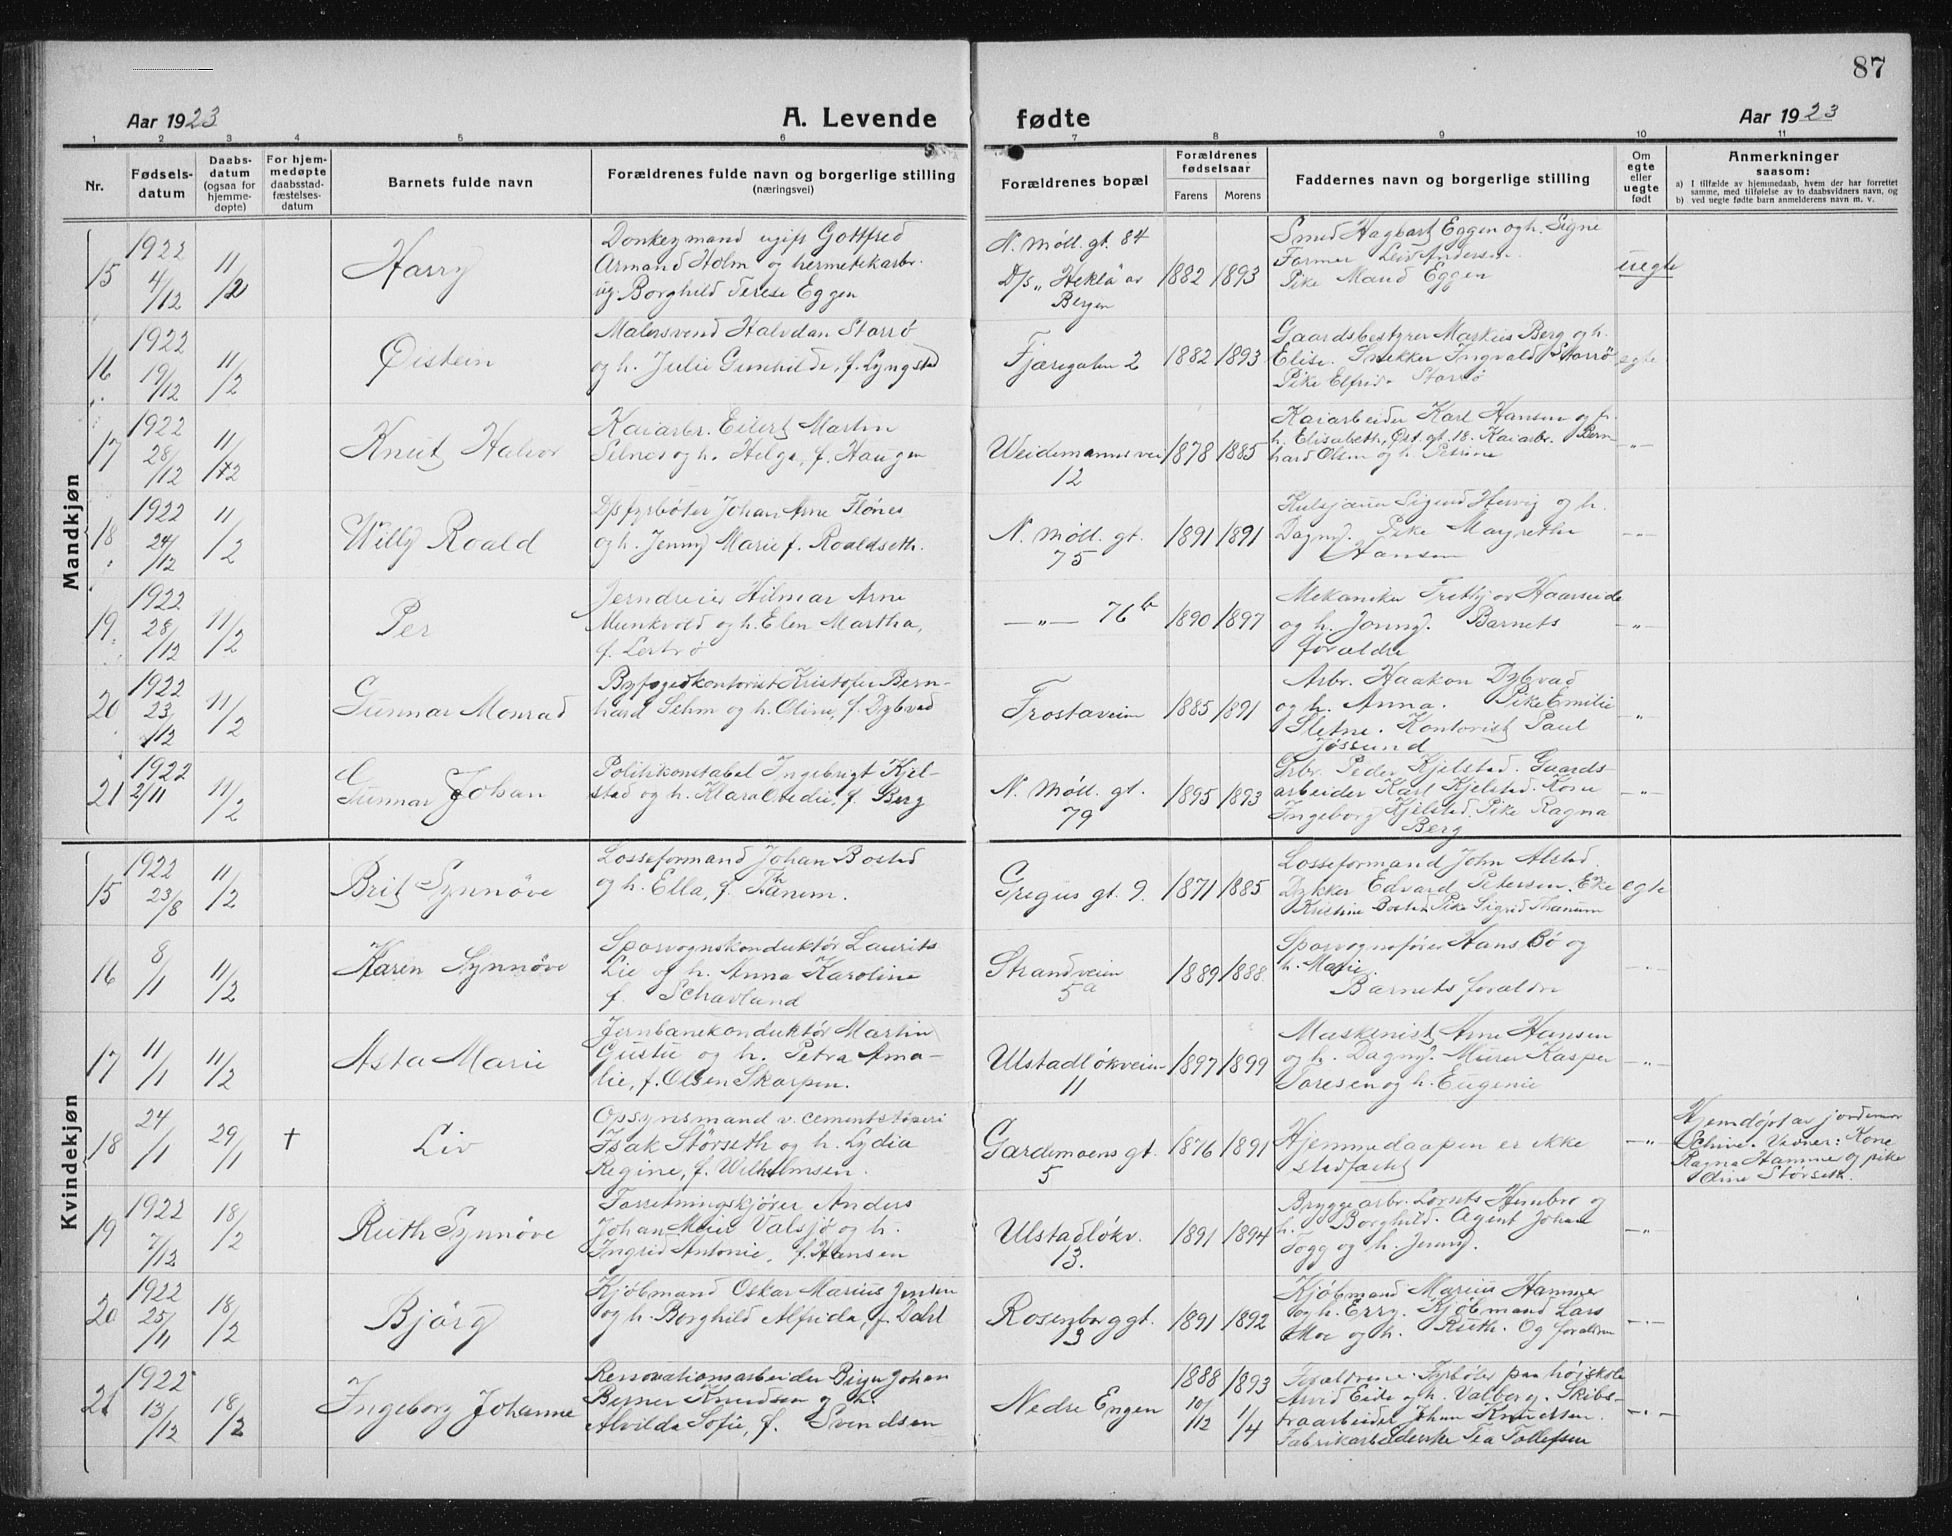 87
Aar 1923
A. Levende fødte
Aar 1923
1 2 3 4 5 6 7 8 9 10 11
Nr.
Fødselsdatum
Daabsdatum (ogsaa for hjemmedøpte)
For hjemmedøpte daabsstadfæstelsesdatum
Barnets fulde navn
Forældrenes fulde navn og borgerlige stilling (næringsvei)
Forældrenes bopæl
Forældrenes fødselsaar
Farens Morens
Faddernes navn og borgerlige stilling
Om egte eller uegte født
Anmerkninger saasom:
a) I tilfælde av hjemmedaab, hvem der har forrettet samme, med tilføielse av to daabsvidners navn, og
b) ved uegte fødte barn anmelderens navn m. v.
Mandkjøn
15 1922 4/12 11/2
Harry
Donkeymand ugift Gottfred
Armand Holm og hermetikarbr.
ug. Borghild Terese Eggen
N. Møll. gt. 84
D/s "Hekla" av
Bergen
1882 1893
Smed Hagbart Eggen og h. Signe
Former Leiv Anderssen
Pike Maud Eggen
uegte
16 1922 19/12 11/2
Øistein
Malersvend Halvdan Storrø
og h. Julie Gunhilde, f. Lyngstad
Fjæregaten 2
1882 1893
Gaardsbestyrer Markus Berg og h.
Elise. Snekker Ingvald Storrø
Pike Elfrida Storrø
egte
17 1922 28/12 11/2
Knut Halvor
Kaiarbr. Eilert Martin
Selnes og h. Helga, f. Haugen
Weidemannsvei
12
1878 1885
Kaiarbeider Karl Hansen og
h. Elisabeth, Øst. gt. 18. Kaiarbr. Bern
hard Olsen og h. Petrine
-"-
18 1922 24/12 11/2
Willy Roald
D/sfyrbøter Johan Arne Flønes
og h. Jenny Marie f. Roaldseth.
N. Møll. gt.
75
1891 1891
Kulsjauer Sigurd Hervig og h.
Dagny. Pike Margrethe
Hansen
-"-
19 1922 28/12 11/2
Per
Jerndreier Hilmar Arne
Munkvold og h. Elen Martha,
f. Lerbrø
-"- 76b
1890 1897
Mekaniker Fritjov Haarseide
og h. Jonny. Barnets
forældre
-"-
20 1922 23/12 11/2
Gunnar Monrad
Byfogedkontorist Kristofer Bern-
hard Sehm og h. Oline, f. Dybvad
Frostaveien
1885 1891
Arbr. Haakon Dybvad
og h. Anna. Pike Emilie
Sletne. Kontorist Paul
Jøssund
-"-
21 1922 2/11 11/2
Gunnar Johan
Politikonstabel Ingebrigt Kjel-
stad og h. Klara Ovedie, f. Berg
N. Møll. gt.
79
1895 1893
Arbr. Peder Kjelstad. Gaards-
arbeider Karl Kjelstad. Kone
Ingeborg Kjelstad. Pike Ragna
Berg
-"-
Kvindekjøn
15 1922 23/8 11/2
Brit Synnøve
Losseformand Johan Bosted
og h. Ella, f. Thanem.
Gregus gt. 9.
1871 1885
Losseformand John Alstad.
Dykker Edvard Petersen. Eke
Kristine Bosted Pike Sigrid Thanum
egte
16 8/1 11/2
Karen Synnøve
Sporvognskonduktør Laurits
Lie og h. Anna Karoline
f. Schavland
Strandveien
5a
1889 1888.
Sporvognsfører Hans Bø og
h. Marie.
Barnets forældre
-"-
17 11/1 11/2
Asta Marie
Jernbanekonduktør Martin
Gustu og h. Petra Ama-
lie, f. Olsen Skarpen.
Ulstadløkveien
11
1897 1899
Maskinist Arne Hansen
og h. Dagny. Murer Kasper
Toresen og h. Eugenie
-"-
18 24/1 29/1 +
Liv
Opsynsmand v. cementstøperi
Isak Størseth og h. Lydia
Regine, f. Wilhelmsen.
Gardemoens gt.
5
1876 1891
Hjemmedaapen er ikke
stadfæstet
-"-
Hjemdøpt av jordemor
Schive. Vidner: Kone
Ragna Hammer og pike
Oline Størseth.
19 1922 7/12 18/2
Ruth Synnøve
Forretningskjører Anders
Johan Meier Valsjø og h.
Ingrid Antonie, f. Hansen
Ulstadløkv.
13.
1891 1894
Bryggearbr. Lornts Hembre og
h. Borghild. Agent Johan
Fogg og h. Jenny.
-"-
20 1922 25/11 18/2
Bjørg
Kjøbmand Oskar Marius Jensen
og h. Borghild Alfrida, f. Dahl
Rosenborg gt.
3
1891 1892
Kjøbmand Marius Hammer
og h. Erry. Kjøbmand Lars
Moe og h. Ruth. Og forældrene
-"-
21 1922 13/12 18/2
Ingeborg Johanne
Renovationsarbeider Birger Johan
Berner Knudsen og h.
Alvilda Sofie, f. Svendsen
Nedre Engen
1888 10/12 1893 1/4
Forældrene. Fyrbøter paa høiskole
Arvid Eide og h. Valborg. Skibs-
traarbeider Johan Knudsen.
Fabrikarbeiderske Tea Tollefsen
-"-